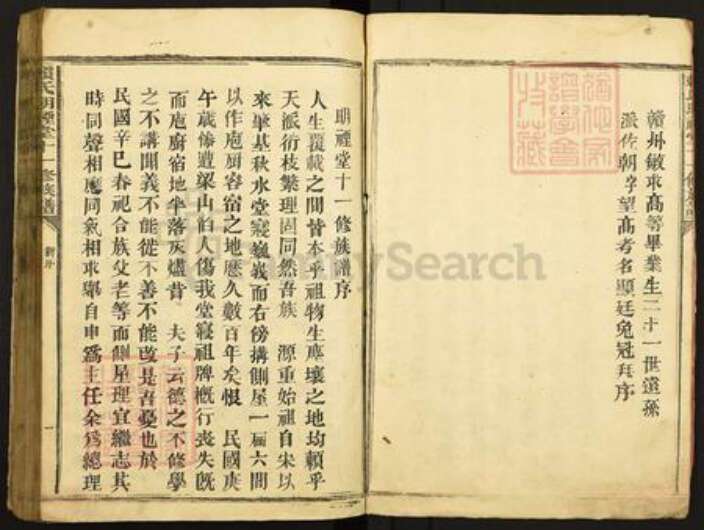 贛州敏求高等畢業生二十一世遠孫
派佐朝字望高考名顯廷免冠拜序
明禋堂十一修族譜序
人生覆載之間皆本乎祖物生專壤之地均賴乎
天派衍枝繁理固同然吾族 源重始祖自宋以
來肇基秋水堂寢巍峩而右傍搆側屋一届六間
以作庖厨容宿之地歷久數百年矣恨 民國庚
午歲慘遭梁山伯人傷我堂寢祖牌概行喪失旣
而庖廚宿地半落灰燼昔 夫子云德之不修學
之不講聞義不能從不善不能改是吾憂也於
民國辛巳春祀合族父老等而側屋理宜繼志其
時同聲相應同氣相求舉自申爲主任余爲總理
明禋堂十一修族譜
新序
一
MySearch